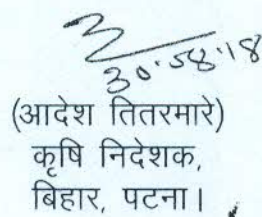 30.08.18
(आदेश तितरमारे)
कृषि निदेशक,
बिहार, पटना।